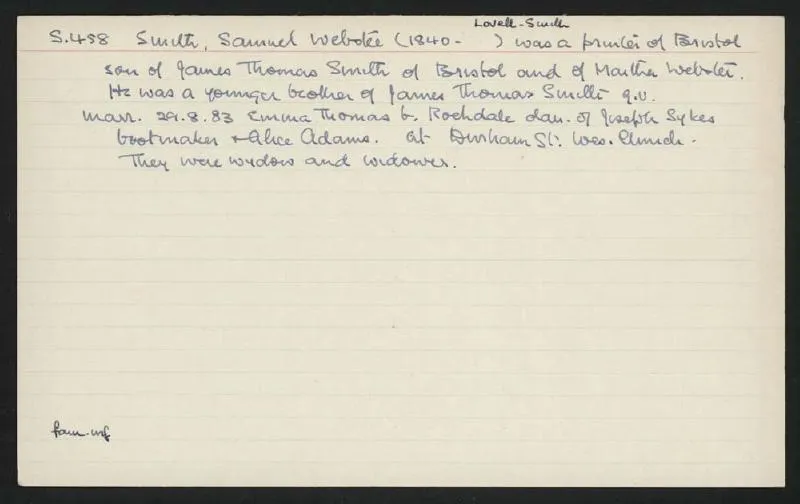 Lovell-Smith
S.458 Smith, Samuel Webster (1840- ) was a printer of Bristol
son of James Thomas Smith of Bristol and of Martha Webster.
He was a younger brother of James Thomas Smith q.v.
marr. 29.8.83 Emma Thomas b. Rochdale dau. of Joseph Sykes
bootmaker & Alice Adams. at Durham St. Wes. Church.
They were widow and widower.
fam. inf